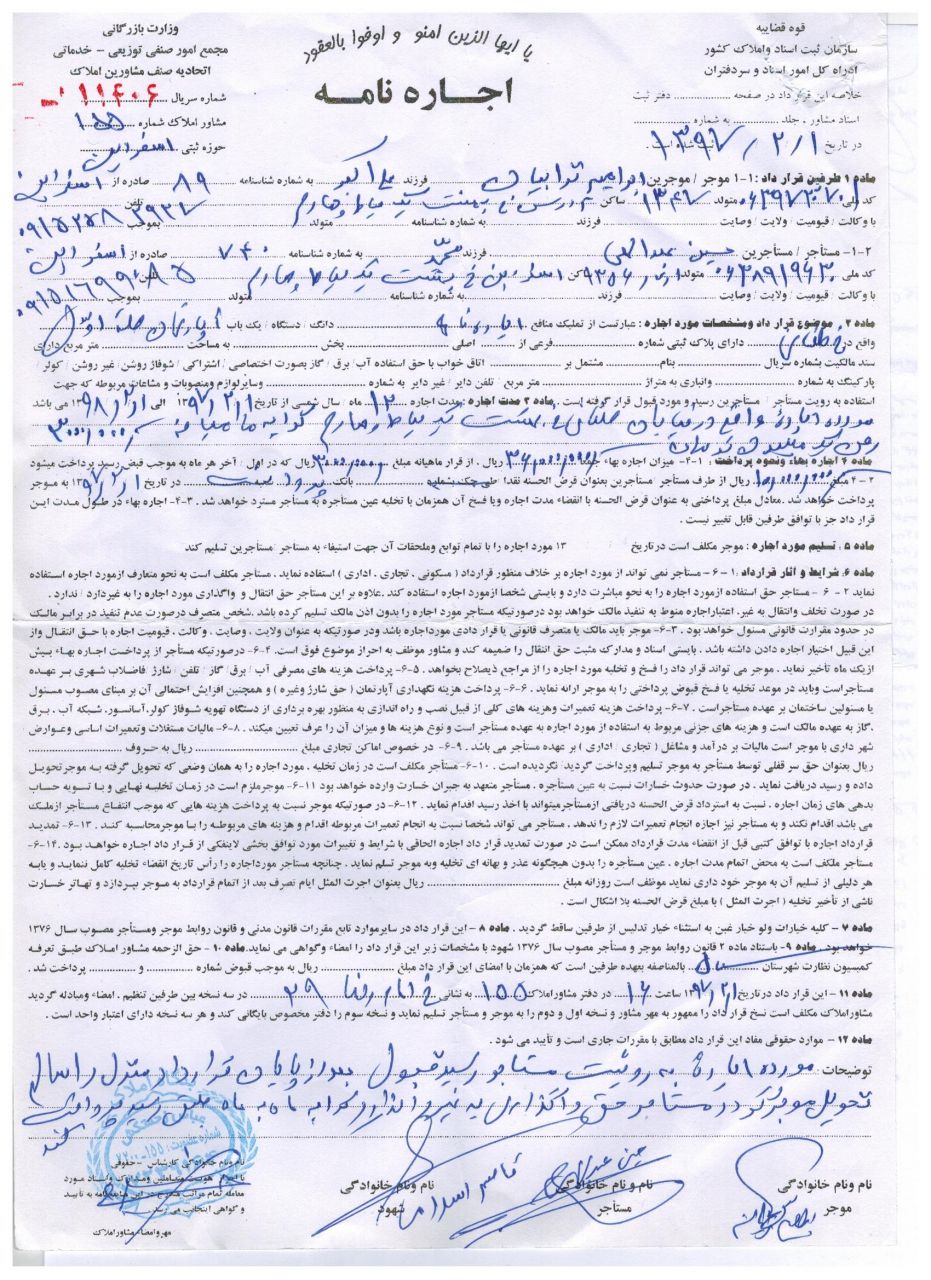 قوه قضاییه
سازمان ثبت اسناد واملاک کشور
اداره کل امور اسناد و سردفتران
خلاصه این قرار داد در صفحه .................. دفتر ثبت
اسناد مشاور . جلد ............ به شماره ............
در تاریخ ۱۳۹۷/۲/۱ ثبت شده است .
یا ایها الذین امنو و اوفوا بالعقود
اجـاره نامـه
وزارت بازرگانی
مجمع امور صنفی توزیعی - خدماتی
اتحادیه صنف مشاورین املاک
شماره سریال ۱۱۴۰۶
مشاور املاک شماره ۱۵۵
حوزه ثبتی اسفراین
ماده ۱ طرفین قرار داد : ۱-۱ موجر / موجرین ابراهیم ترابیان فرزند علی اکبر به شماره شناسنامه ۸۹ صادره از اسفراین
کد ملی متولد ۱۳۴۷ ساکن تلفن
با وکالت / قیمومیت / ولایت / وصایت فرزند به شماره شناسنامه متولد بموجب
۱-۲- مستأجر / مستأجرین حسین عبدالهی فرزند محمد به شماره شناسنامه ۷۴۰ صادره از اسفراین
کد ملی متولد ساکن
با وکالت / قیمومیت / ولایت / وصایت فرزند به شماره شناسنامه متولد بموجب
ماده ۲ موضوع قرار داد ومشخصات مورد اجاره : عبارتست از تملیک منافع دانگ / دستگاه / یک باب آپارتمان طبقه اول
واقع در دارای پلاک ثبتی شماره فرعی از اصلی بخش به مساحت متر مربع دارای
سند مالکیت بشماره سریال بنام مشتمل بر اتاق خواب با حق استفاده آب / برق / گاز بصورت اختصاصی / اشتراکی / شوفاژ روشن / غیر روشن / کولر /
پارکینگ به شماره وانباری به متراژ متر مربع / تلفن دایر / غیر دایر به شماره وسایر لوازم ومنصوبات و مشاعات مربوطه که جهت
استفاده به رویت مستأجر / مستأجرین رسید و مورد قبول قرار گرفته است . ماده ۳ مدت اجاره : مدت اجاره ۱۲ ماه / سال شمسی از تاریخ ۱۳۹۷/۲/۱ الی ۱۳۹۸/۲/۱ می باشد
مورد اجاره واقع در خیابان طالقانی بهشت یک حیاط چهارم کرایه ماهیانه ۳۰۰۰/۰۰۰
رهن یک میلیون تومان
ماده ۴ اجاره بهاء ونحوه پرداخت : ۱-۴- میزان اجاره بهاء جمعا ۳۶/۰۰۰/۰۰۰ ریال . از قرار ماهیانه مبلغ ۳۰۰۰/۰۰۰ ریال که در اول / آخر هر ماه به موجب قبض رسید پرداخت میشود
۲-۴ مبلغ ۱۰/۰۰۰/۰۰۰ ریال از طرف مستأجر / مستأجرین بعنوان قرض الحسنه نقدا / طی چک بشماره بانک در تاریخ ۹۷/۲/۱ به موجر
پرداخت خواهد شد . معادل مبلغ پرداختی به عنوان قرض الحسنه با انقضاء مدت اجاره ویا فسخ آن همزمان با تخلیه عین مستأجره به مستأجر مسترد خواهد شد . ۳-۴- اجاره بهاء در طول مدت این
قرار داد جز با توافق طرفین قابل تغییر نیست .
ماده ۵ : تسلیم مورد اجاره : موجر مکلف است در تاریخ ۱۳ مورد اجاره را با تمام توابع وملحقات آن جهت استیفاء به مستأجر / مستأجرین تسلیم کند
ماده ۶. شرایط و آثار قرارداد : ۱-۶- مستأجر نمی تواند از مورد اجاره بر خلاف منظور قرارداد ( مسکونی . تجاری . اداری ) استفاده نماید . مستأجر مکلف است به نحو متعارف ازمورد اجاره استفاده
نماید ۲-۶- مستأجر حق استفاده ازمورد اجاره را به نحو مباشرت دارد و بایستی شخصا ازمورد اجاره استفاده کند .علاوه بر این مستأجر حق انتقال و واگذاری مورد اجاره را به غیردارد / ندارد .
در صورت تخلف وانتقال به غیر. اعتباراجاره منوط به تنفیذ مالک خواهد بود درصورتیکه مستأجر مورد اجاره را بدون اذن مالک تسلیم کرده باشد .شخص متصرف درصورت عدم تنفیذ در برابر مالک
در حدود مقرارت قانونی مسئول خواهد بود . ۳-۶- موجر باید مالک یا متصرف قانونی یا قرار دادی مورداجاره باشد ودر صورتیکه به عنوان ولایت . وصایت . وکالت . قیمومیت اجاره با حق انتقال واز
این قبیل اختیار اجاره دادن داشته باشد . بایستی اسناد و مدارک مثبت حق انتقال را ضمیمه کند و مشاور موظف به احراز موضوع فوق است. ۴-۶- درصورتیکه مستأجر از پرداخت اجاره بهاء بیش
ازیک ماه تأخیر نماید . موجر می تواند قرار داد را فسخ و تخلیه مورد اجاره را از مراجع ذیصلاح بخواهد . ۵-۶- پرداخت هزینه های مصرفی آب / برق / گاز / تلفن / شارژ فاضلاب شهری بر عهده
مستأجراست وباید در موعد تخلیه یا فسخ قبوض پرداختی را به موجر ارائه نماید . ۶-۶- پرداخت هزینه نگهداری آپارتمان ( حق شارژ وغیره ) و همچنین افزایش احتمالی آن بر مبنای مصوب مسئول
یا مسئولین ساختمان بر عهده مستأجراست . ۷-۶- پرداخت هزینه تعمیرات وهزینه های کلی از قبیل نصب و راه اندازی به منظور بهره برداری از دستگاه تهویه شوفاژ کولر.آسانسور. شبکه آب . برق
.گاز به عهده مالک است و هزینه های جزئی مربوط به استفاده از مورد اجاره به عهده مستأجر است و نوع هزینه ها ومیزان آن را عرف تعیین میکند . ۸-۶- مالیات مستغلات وتعمیرات اساسی وعوارض
شهر داری با موجر است مالیات بر درآمد و مشاغل ( تجاری / اداری ) بر عهده مستأجر می باشد . ۹-۶- در خصوص اماکن تجاری مبلغ ریال به حروف
ریال بعنوان حق سر قفلی توسط مستأجر به موجر تسلیم وپرداخت گردید/ نگردیده است . ۱۰-۶- مستأجر مکلف است در زمان تخلیه . مورد اجاره را به همان وضعی که تحویل گرفته به موجرتحویل
داده و رسید دریافت نماید . در صورت حدوث خسارات نسبت به عین مستأجره . مستأجر متعهد به جبران خسارت وارده خواهد بود ۱۱-۶- موجرملزم است در زمان تخلیه نهایی و با تسویه حساب
بدهی های زمان اجاره . نسبت به استرداد قرض الحسنه دریافتی ازمستأجرمیتواند با اخذ رسید اقدام نماید . ۱۲-۶- در صورتیکه موجر نسبت به پرداخت هزینه هایی که موجب انتفاع مستأجر ازملک
می باشد اقدام نکند و به مستأجر نیز اجازه انجام تعمیرات لازم را ندهد . مستأجر می تواند شخصا نسبت به انجام تعمیرات مربوطه اقدام و هزینه های مربوطه را با موجرمحاسبه کند . ۱۳-۶- تمدید
قرارداد اجاره با توافق کتبی قبل از انقضاء مدت قرارداد ممکن است در صورت تمدید قرار داد اجاره الحاقی با شرایط و تغییرات مورد توافق بخشی لاینفکی از قرار داد اجاره خواهد بود . ۱۴-۶-
مستأجر ملکف است به محض اتمام مدت اجاره . عین مستأجره را بدون هیچگونه عذر و بهانه ای تخلیه وبه موجر تسلم نماید . چنانچه مستأجر مورداجاره را رأس تاریخ انقضاء تخلیه کامل ننماید و یابه
هر دلیلی از تسلیم آن به موجر خود داری نماید موظف است روزانه مبلغ ریال بعنوان اجرت المثل ایام تصرف بعد از اتمام قرارداد به موجر بپردازد و تهاتر خسارت
ناشی از تأخیر تخلیه ( اجرت المثل ) با مبلغ قرض الحسنه بلا اشکال است .
ماده ۷ - کلیه خیارات ولو خیار غبن به استثناء خیار تدلیس از طرفین ساقط گردید . ماده ۸ - این قرار داد در سایرموارد تابع مقررات قانون مدنی و قانون روابط موجر ومستأجر مصوب سال ۱۳۷۶
خواهد بود . ماده ۹- باستناد ماده ۲ قانون روابط موجر و مستأجر مصوب سال ۱۳۷۶ شهود با مشخصات زیر این قرار داد را امضاء وگواهی می نماید. ماده ۱۰- حق الزحمه مشاور املاک طبق تعرفه
کمیسیون نظارت شهرستان بالمناصفه بعهده طرفین است که همزمان با امضای این قرار داد مبلغ ریال به موجب قبوض شماره و پرداخت شد .
ماده ۱۱ - این قرار داد در تاریخ ۱۳۹۷/۲/۱ ساعت ۱۶ در دفتر مشاوراملاک ۱۵۵ به نشانی خ امام رضا ۲۹ در سه نسخه بین طرفین تنظیم . امضاء ومبادله گردید
مشاوراملاک مکلف است نسخ قرار داد را ممهور به مهر مشاور و نسخه اول و دوم را به موجر و مستأجر تسلیم نماید و نسخه سوم را دفتر مخصوص بایگانی کند و هر سه نسخه دارای اعتبار واحد است .
ماده ۱۲ - موارد حقوقی مفاد این قرار داد مطابق با مقررات جاری است و تأیید می شود .
توضیحات : مورده اجاره به روئیت مستاجر رسید قبول بعد از پایان قرارداد منزل را سالم
تحویل موجر گردد مستاجر حق واگذاری به غیر را ندارد کرایه ماه به ماه طبق رسید پرداخت کند
نام ونام خانوادگی
موجر
نام و نام خانوادگی
مستأجر
حسین عبدالهی
نام ونام خانوادگی
شهود
قاسم اسلامی
نام ونام خانوادگی کارشناس - حقوقی
با احراز هویت متعاملین ومدارک واسناد مورد
معامله تمام مراتب مندرج در این مبایعه نامه به تأیید
و گواهی اینجانب می رسد .
مهر وامضاء مشاوراملاک